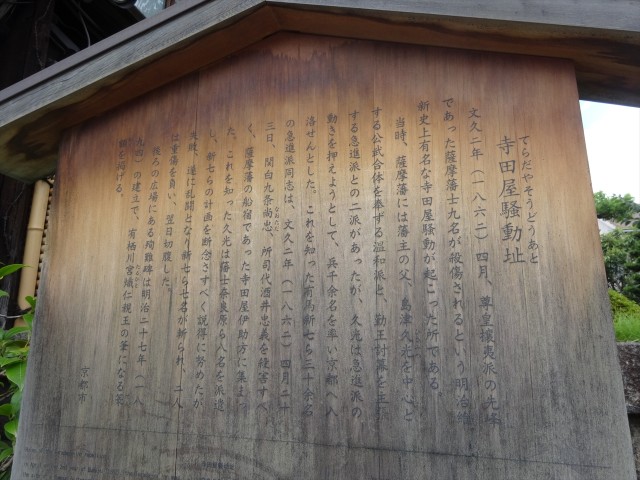 てらだやそうどうあと
寺田屋騒動址
文久二年（一八六二）四月、尊皇攘夷派の先鋒
であった薩摩藩士九名が殺傷されるという明治維
新史上有名な寺田屋騒動が起こった所である
当時、薩摩藩には藩主の父、島津久光を中心と
する公武合体を奉ずる温和派と、勤王討幕を主
する急進派との二派があったが、久光は急進派の
動きを押えようとして、兵千余名を率い京都へ入
洛せんとした。これを知った有馬新七ら三十余名
の急進派同志は、文久二年（一八六二）四月二十
三日、関白九条尚忠、所司代酒井忠義を殺害すべ
く、薩摩藩の船宿であった寺田屋伊助方に集まっ
た。これを知った久光は藩士奈良原ら八名を派遣
し、新七らの計画を断念さすべく説得に努めたが
失敗、遂に乱闘となり新七ら七名が斬られ、二人
は重傷を負い、翌日切腹した。
後ろの広場にある殉難碑は明治二十七年（一八
九四）の建立で、有栖川宮熾仁親王の筆になる篆
額を掲げる。
京都市